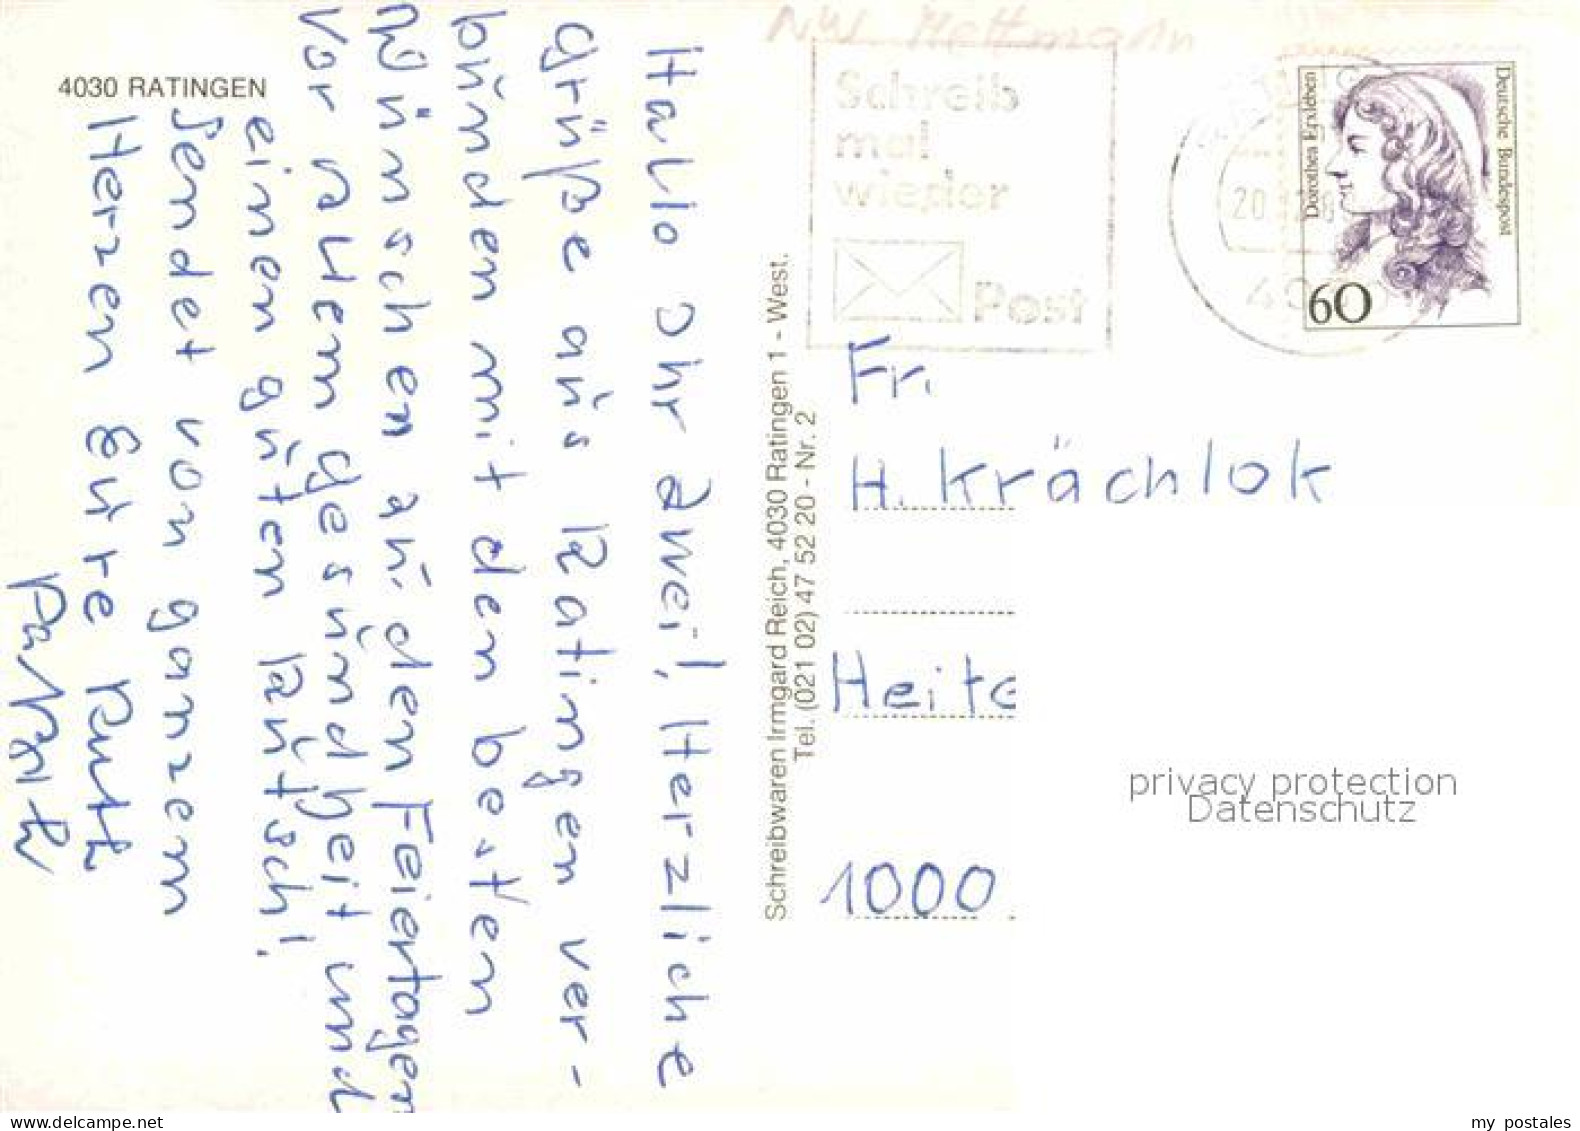 4030 RATINGEN
Hallo Ihr Zwei! Herzliche
Grüße aus Ratingen ver-
bunden mit den besten
Wünschen zu den Feiertagen
vor allem Gesundheit und
einen guten Rutsch!
Sendet von ganzem
Herzen Eure Ruth
Schreibwaren Irmgard Reich, 4030 Ratingen 1 - West.
Tel. (021 02) 47 52 20 - Nr. 2
NW Mettmann
Schreib
mal
wieder
Post
20
Deutsche Bundespost
Dorothea Erxleben
60
Fr.
H. Krächlok
Heite
1000
privacy protection
Datenschutz
my postales